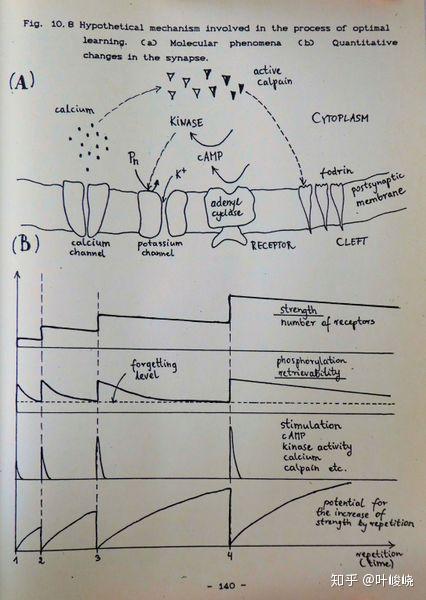 Fig. 10.8 Hypothetical mechanism involved in the process of optimal
learning. (a) Molecular phenomena (b) Quantitative
changes in the synapse.
(A)
calcium
active
calpain
KINASE
CYTOPLASM
Pn
K+
cAMP
fodrin
adenyl
cyclase
postsynaptic
membrane
calcium
channel
potassium
channel
RECEPTOR
CLEFT
(B)
strength
number of receptors
phosphorylation
retrievability
forgetting
level
stimulation
cAMP
kinase activity
calcium
calpain etc.
potential for
the increase of
strength by repetition
1 2 3 4
repetition
(time)
- 140 -
知乎 @叶峻峣